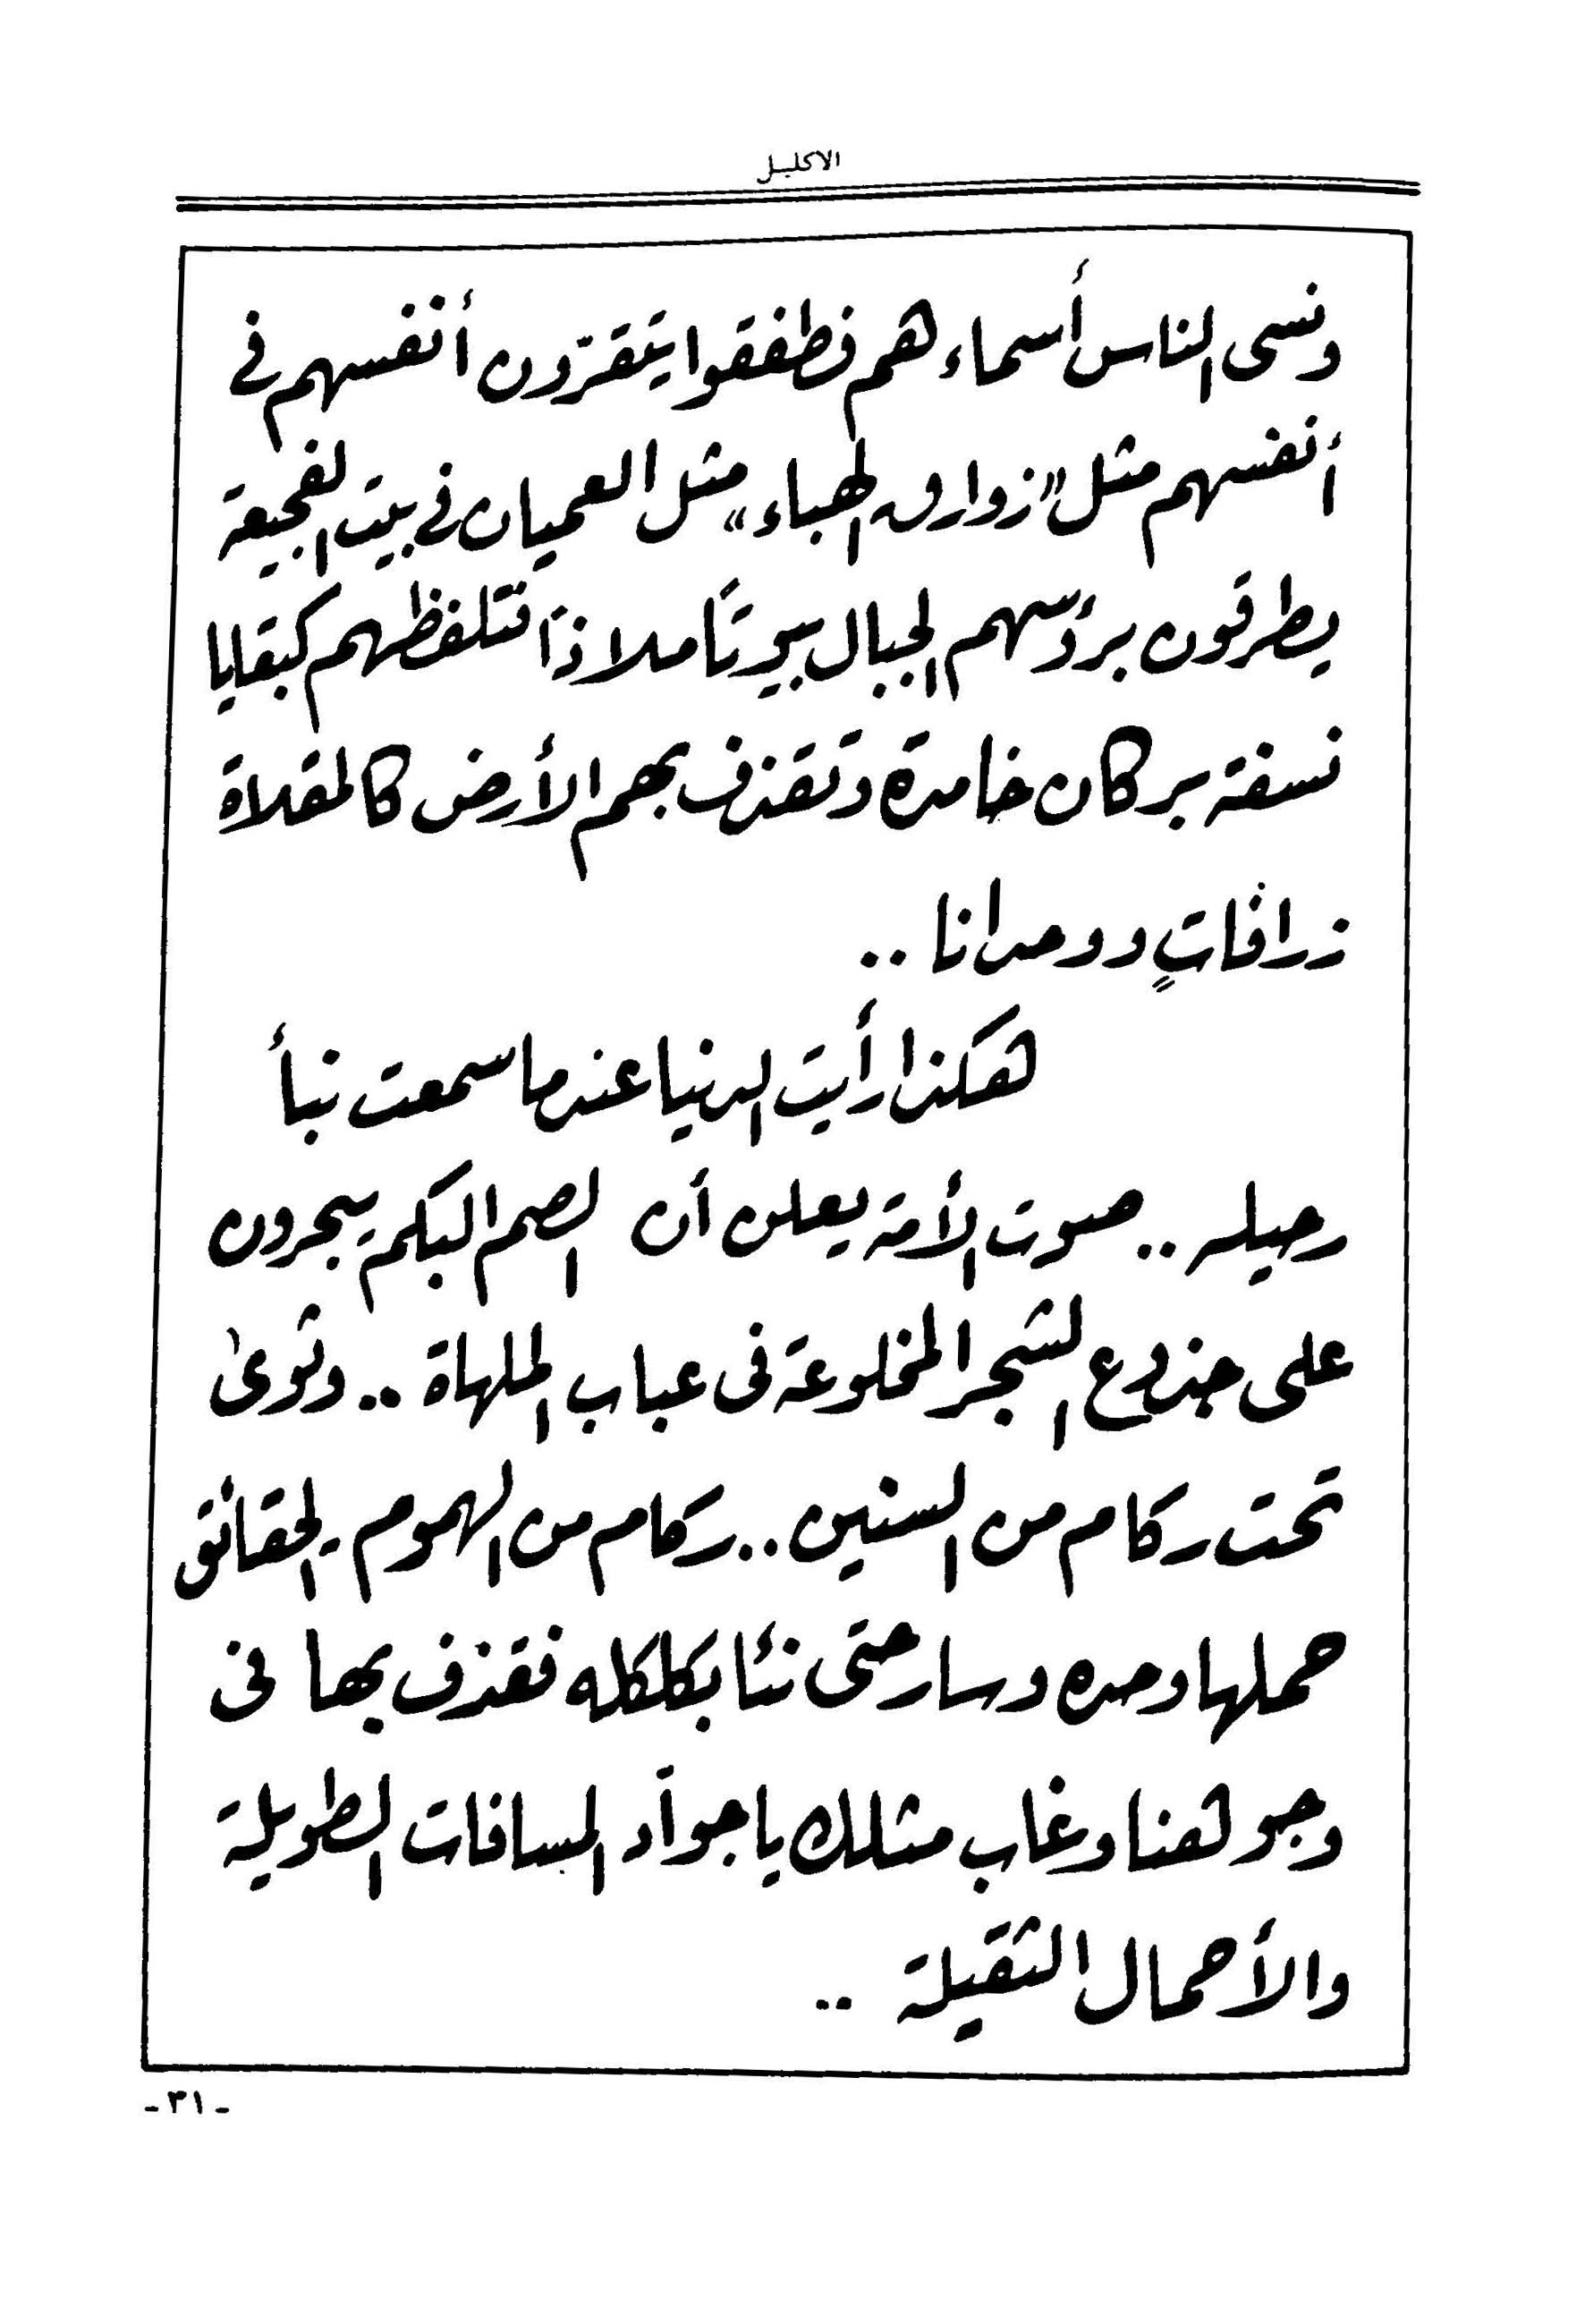 الاكليل
ونسى الناس أسماءهم فطفقوا يتقرّون أنفسهم في
أنفسهم مثل «زوارق الهباء» مثل العميان في بيت الفجيعة
يطرقون برؤسهم الجبال بيوتاً ملاذاً فتلفظهم كبقايا
نسفة بركان خامدة وتقذف بهم الأرض كالمقلاة
زرافاتٍ ووحدانا ..
هكذا رأيت الدنيا عندما سمعت نبأ
رحيله .. صوت الأمة يعلن أن الصم البكم يبحرون
على جذوع الشجر المخلوعة فى عباب الملهاة .. وثوىٰ
تحت ركام من السنين .. ركام من الهموم - الحقائق
حملها وحده وسار حتى نئا بكلكله فقذف بها فى
وجوهنا وغاب مثلك يا جوأد المسافات الطويلة
والأحمال الثقيلة ..
- ٣١ -